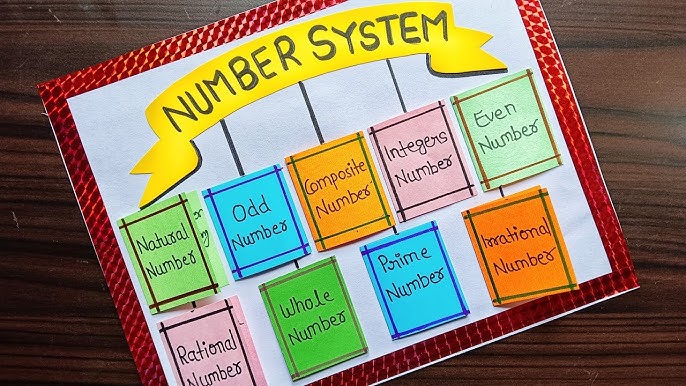 NUMBER SYSTEM
Natural
Number
Odd
Number
Composite
Number
Integers
Number
Even
Number
Rational
Number
Whole
Number
Prime
Number
Irrational
Number